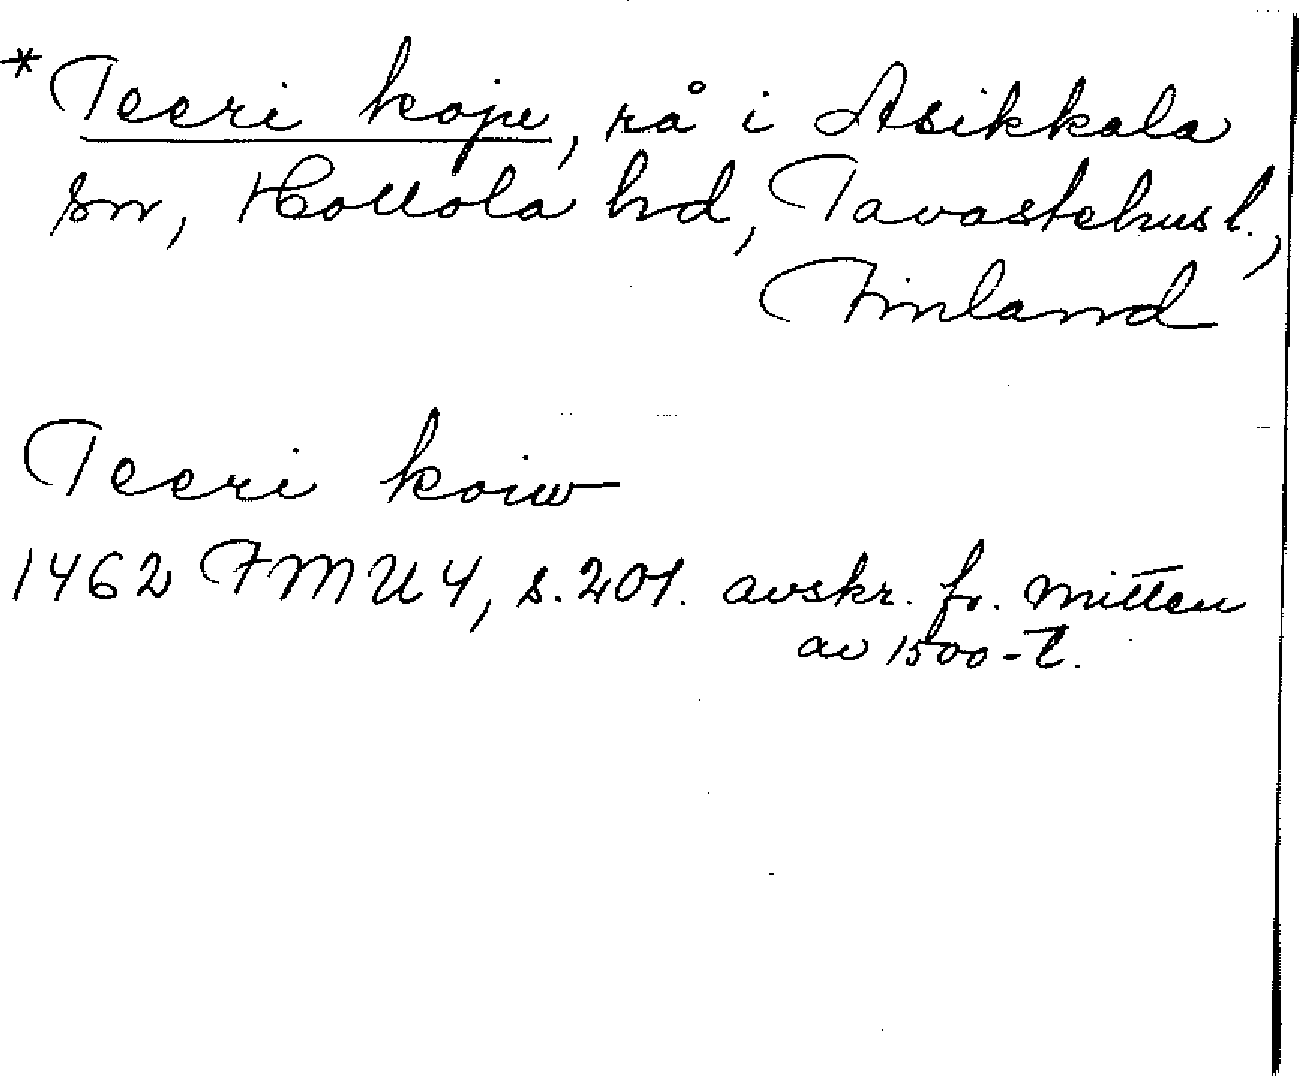 *Teeri koju, rå i Asikkala
sn, Hollola hd, Tavastehus l.,
Finland
Teeri koiw
1462 FMU 4, s. 201. avskr. fr. mitten
av 1500-t.